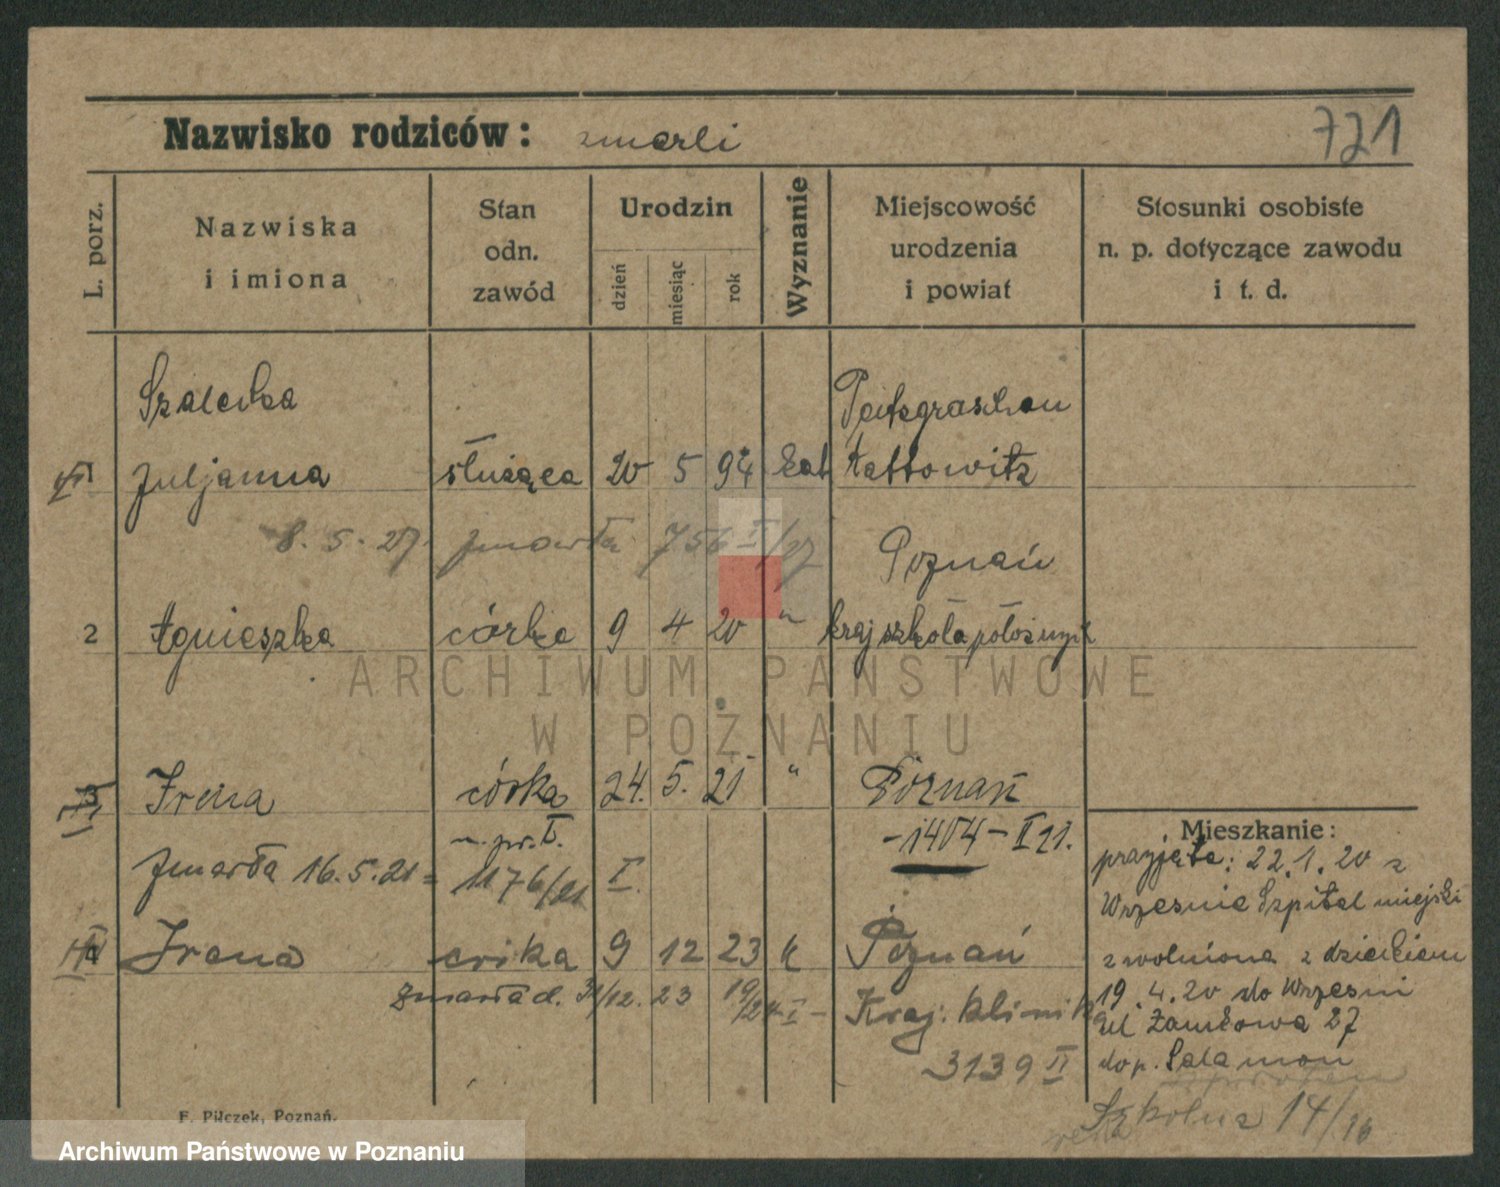 Nazwisko rodziców: zmarli
721
L. porz.
Nazwiska
i imiona
Stan
odn.
zawód
Urodzin
dzień
miesiąc
rok
Wyznanie
Miejscowość
urodzenia
i powiat
Stosunki osobiste
n. p. dotyczące zawodu
i t. d.
1
Juljanna służąca 20 5 94 kat Kattowitz
8. 5. 27. zmarła 756 I/27
Poznań
2 Agnieszka córka 9 4 20 " kraj szkoła położnych
3 Irena córka 24. 5. 21 " Poznań
-1404- II 21.
Zmarła 16.5.21 = 1176/21 I.
4 Irena córka 9 12 23 k Poznań
zmarła d. 31/12. 23
Kraj. klinik
3139 II
Mieszkanie:
przyjęta: 22.1.20 z
Wrzesnie Szpital miejski
zwolniona z dzieckiem
19.4.20 do Wrzesni
ul Zamkowa 27
do p. Salamon
Szkolna 14/16
F. Pilczek, Poznań.
ARCHIWUM PAŃSTWOWE
W POZNANIU
Archiwum Państwowe w Poznaniu